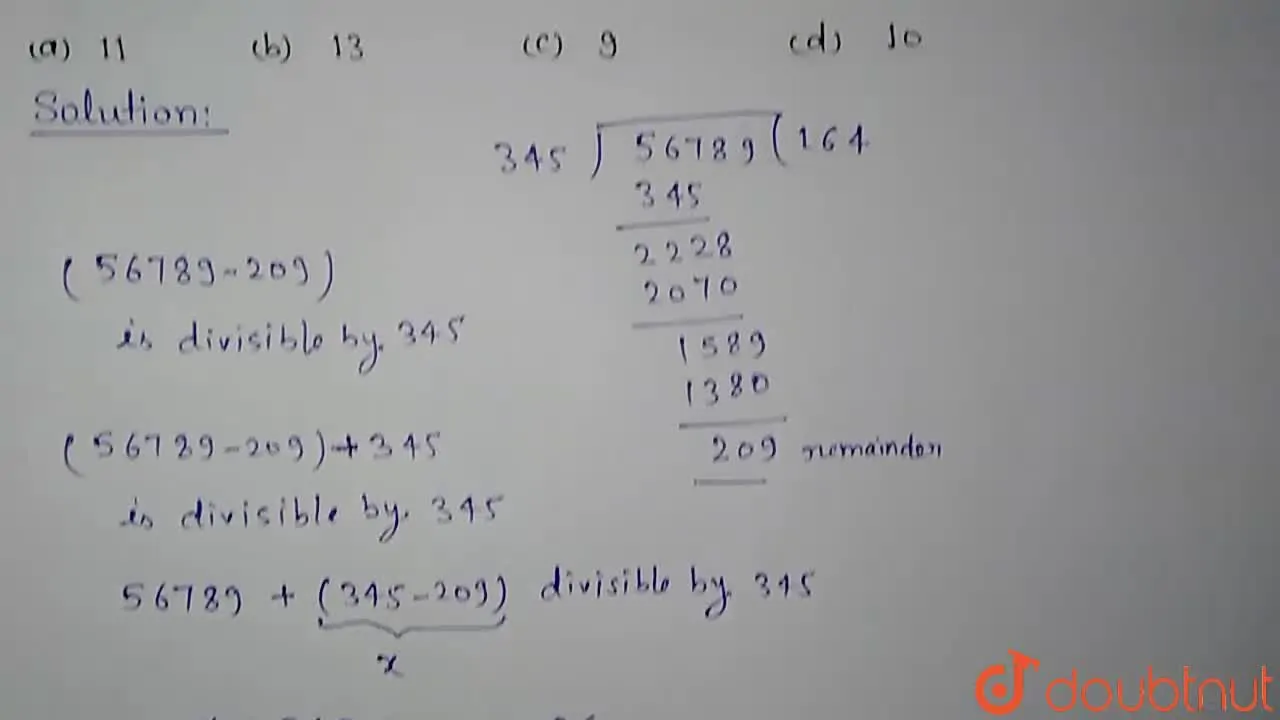 (a) 11 (b) 13 (c) 9 (d) 10
Solution:
345 ) 56789 ( 164
345
2228
2070
1589
1380
209 remainder
(56789-209)
is divisible by. 345
(56789-209)+345
is divisible by. 345
56789 + (345-209) divisible by. 345
x
doubtnut